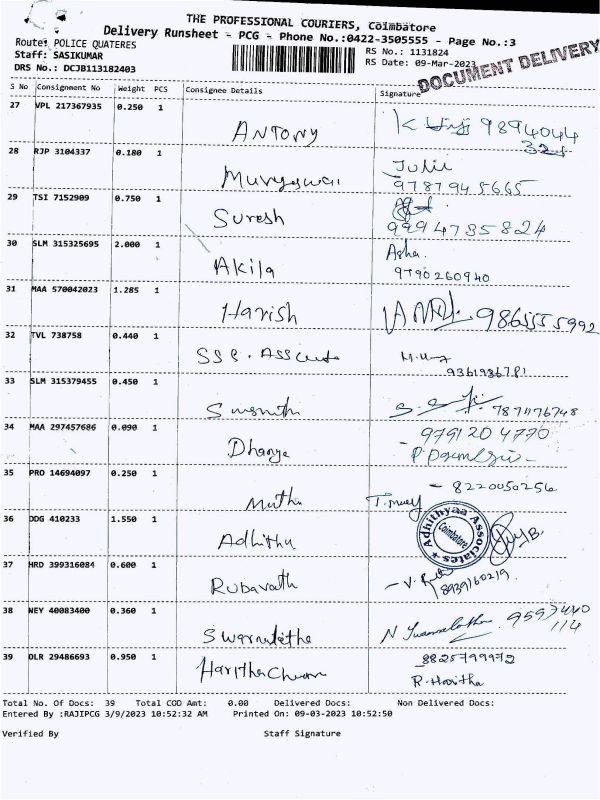 THE PROFESSIONAL COURIERS, Coimbatore
Delivery Runsheet - PCG - Phone No.:0422-3505555 - Page No.:3
Route: POLICE QUATERES
Staff: SASIKUMAR
DRS No.: DCJB113182403
RS No.: 1131824
RS Date: 09-Mar-2023
DOCUMENT DELIVERY
S No Consignment No Weight PCS Consignee Details Signature
27 VPL 217367935 0.250 1
ANTONY 9894044
28 RJP 3104337 0.180 1
Julie
9787945665
29 TSI 7152909 0.750 1
Suresh 9994735824
30 SLM 315325695 2.000 1
Asha
Akila 9790260940
31 MAA 570042023 1.285 1
Harish 9865555992
32 TVL 738758 0.440 1
9361936781
33 SLM 315379455 0.450 1
7871176748
34 MAA 297457686 0.090 1
9791204770
Dhanya
35 PRO 14694097 0.250 1
8220050256
Muthu
36 DDG 410233 1.550 1
Adhithyaa Associates
Coimbatore
37 HRD 399316084 0.600 1
8939160219
38 NEY 40083400 0.360 1
9597440
114
39 DLR 29486693 0.950 1
8825799972
R. Haritha
Total No. Of Docs: 39 Total COD Amt: 0.00 Delivered Docs: Non Delivered Docs:
Entered By :RAJIPCG 3/9/2023 10:52:32 AM Printed On: 09-03-2023 10:52:50
Verified By Staff Signature